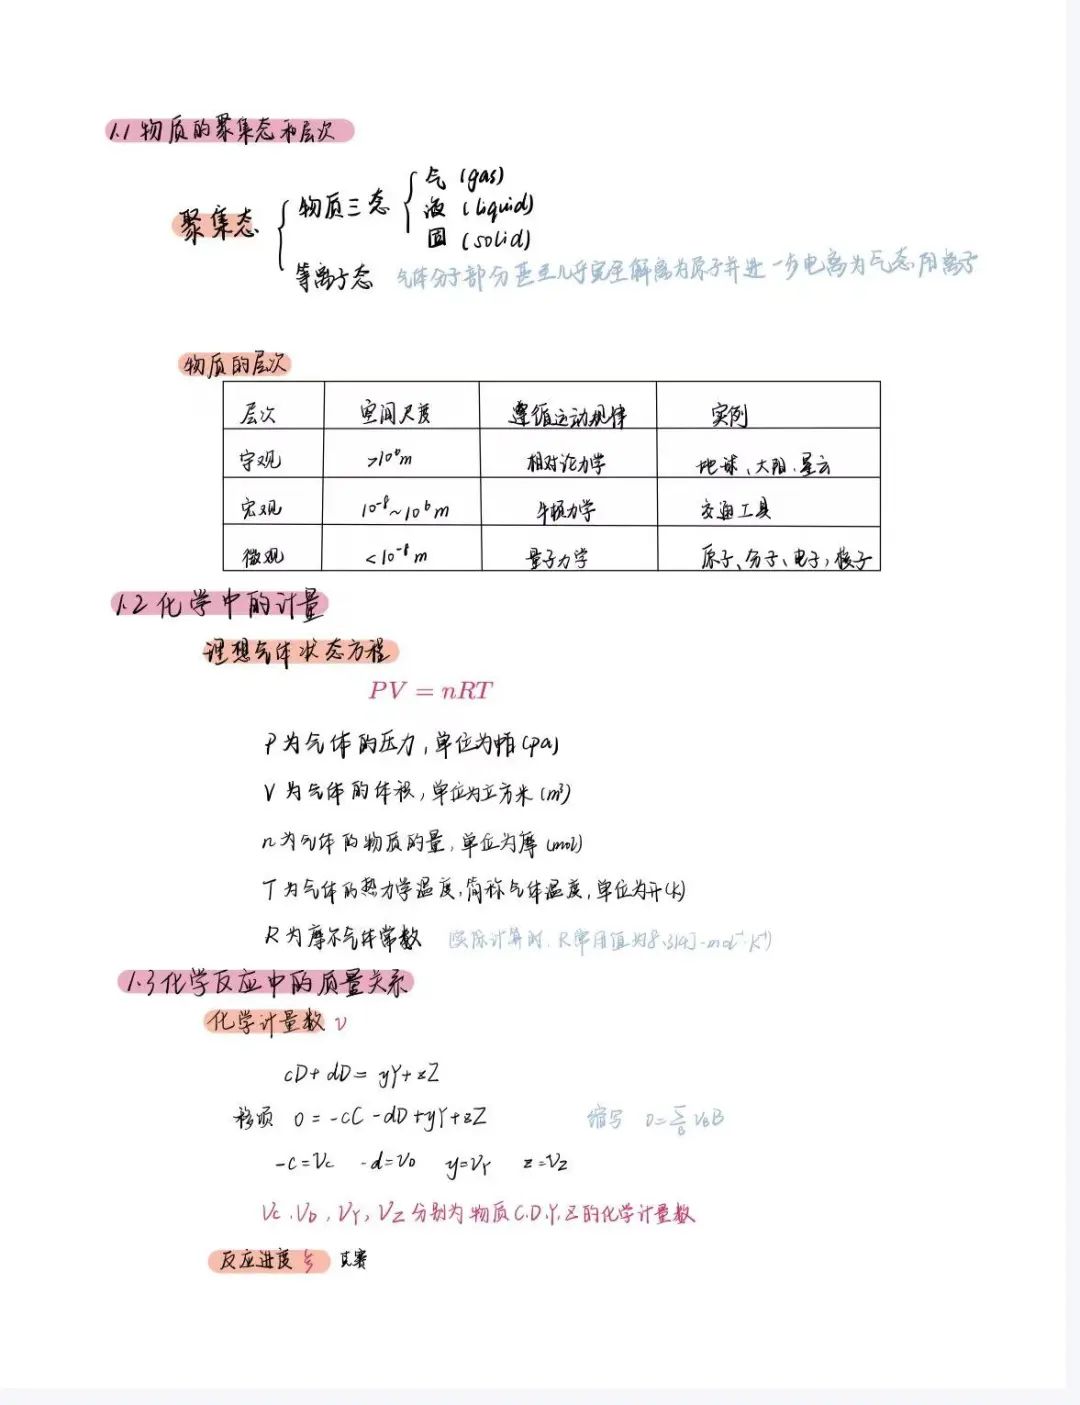 1.1 物质的聚集态和层次
聚集态
物质三态
气 (gas)
液 (liquid)
固 (solid)
等离子态 气体分子部分甚至几乎完全解离为原子并进一步电离为气态阳离子
物质的层次
层次 空间尺度 遵循运动规律 实例
宇观 >10⁶m 相对论力学 地球、太阳、星云
宏观 10⁻⁸~10⁶m 牛顿力学 交通工具
微观 <10⁻⁸m 量子力学 原子、分子、电子、核子
1.2 化学中的计量
理想气体状态方程
PV = nRT
P为气体的压力,单位为帕(pa)
V为气体的体积,单位为立方米(m³)
n为气体的物质的量,单位为摩(mol)
T为气体的热力学温度,简称气体温度,单位为开(K)
R为摩尔气体常数 实际计算时,R常用值为8.314J·mol⁻¹·K⁻¹)
1.3 化学反应中的质量关系
化学计量数 ν
cD+dD=yY+zZ
移项 0=-cC-dD+yY+zZ 缩写 0=∑_B ν_B B
-c=ν_C -d=ν_D y=ν_Y z=ν_Z
ν_C,ν_D,ν_Y,ν_Z分别为物质C.D.Y.Z的化学计量数
反应进度 ξ 克赛